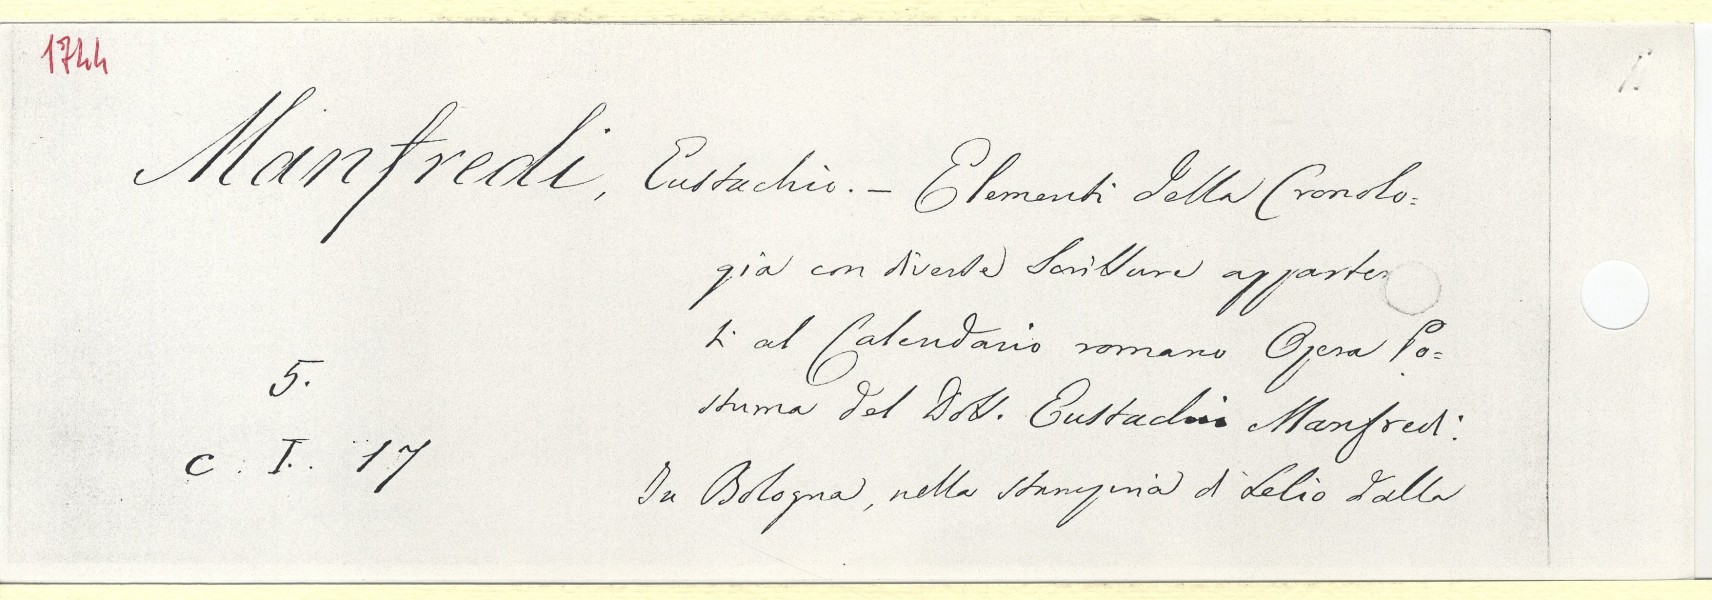 1744
Manfredi, Eustachio. – Elementi della Cronolo=
gia con diverse Scritture apparten
ti al Calendario romano Opera Po=
stuma del Dott. Eustachi Manfredi.
5.
C. I. 17
In Bologna, nella stamperia di Lelio dalla